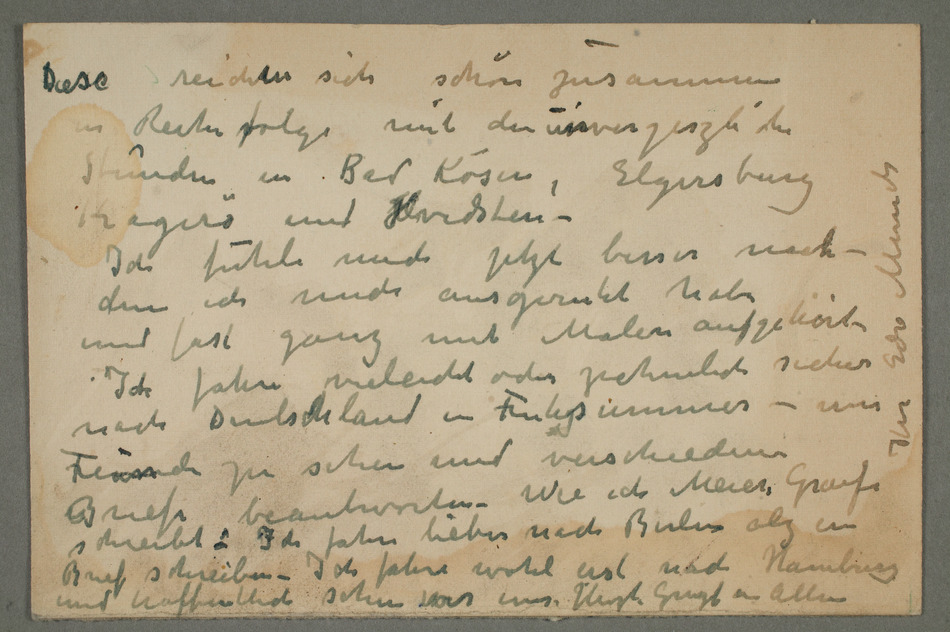 Diese reichen sich schön zusammen
in Reihe folge mit den unvergeszlichen
Stunden in Bad Kösen, Elgersburg
Kragerö und Hvidsten –
Ich fühle mich jetzt besser nach–
dem ich mich ausgeruht habe
und fast ganz mit Malen aufgehört –
Ich fahre vieleicht oder zihmlich sicher
nach Deutschland in Früh summer – um
Freunde zu sehen und verschiedene
Briefe beantworten – Wie ich Meier Graefe
schreibt : Ich fahre lieber nach Berlin alz ein
Brief schreiben – Ich fahre wohl erst nach Hamburg
und hoffentlich sehen wir uns. Herzl. Gruss an Allen
Ihr Edv Munch